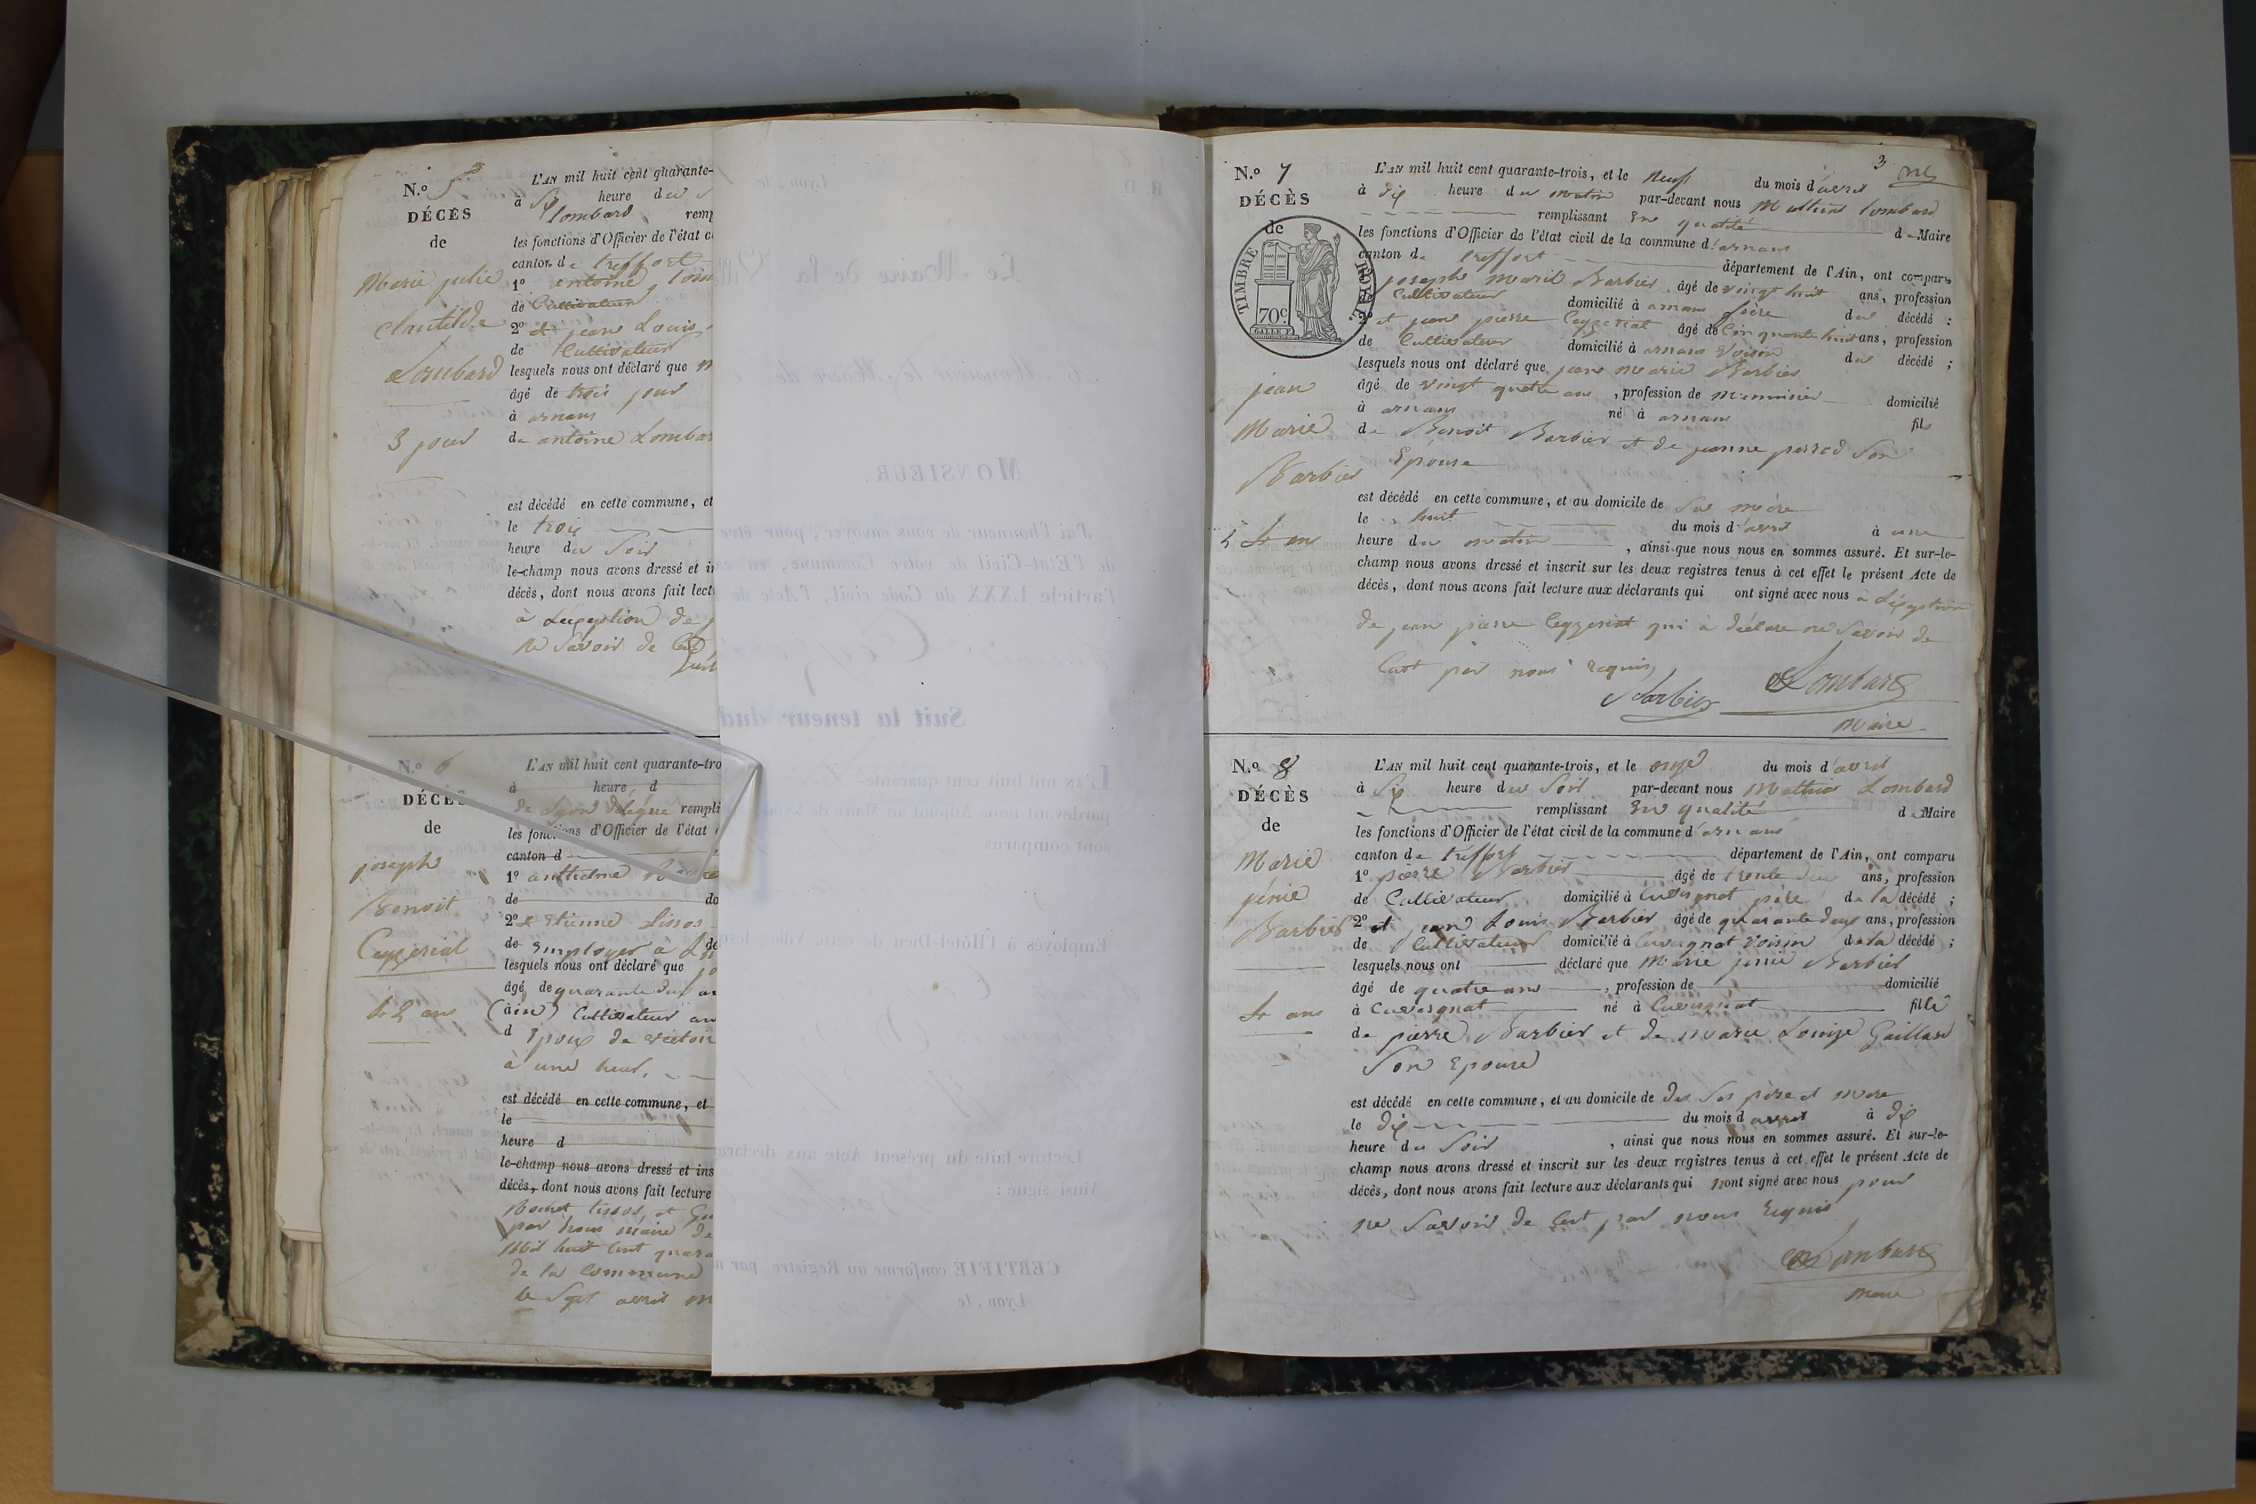 N.º 5
DÉCÈS
de
Marie julie
Clautilde
Lombard
3 jour
L'AN mil huit cent quarante-
à Six heure du
Lombard remp
les fonctions d'Officier de l'état c
canton de treffort
1º antoine
de Cultivateur
2º et jean Louis
de Cultivateur
lesquels nous ont déclaré que
âgé de trois jour
à arnans
de antoine Lombar
est décédé en cette commune, et
le trois
heure du Soir
le-champ nous avons dressé et in
décès, dont nous avons fait lect
à Lexeption de
ne Savoir de
N.º 6
DÉCÈS
de
joseph
Benoit
Ceyzeriat
42 ans
L'AN mil huit cent quarante-tro
à heure d
de Lyon délégué rempli
les fonctions d'Officier de l'état
canton d
1º anthelme
de do
2º et Etienne Lissos
de Employer à
lesquels nous ont déclaré que jo
âgé de quarante deux an
(ain) Cultivateur
d Epoux de
à une heur,
est décédé en cette commune, et
le
heure d
le-champ nous avons dressé et ins
décès, dont nous avons fait lecture
par nous maire de
Mil huit Cent quara
de la Commune
le Sept avril
Le Maire de la Vill
A Monsieur le Maire de
MONSIEUR,
J'ai l'honneur de vous envoyer, pour être
de l'Etat-Civil de votre Commune, en
l'article LXXX du Code civil, l'Acte de
Suit la teneur dud
L'AN mil huit cent quarante-
pardevant nous Adjoint au Maire de
sont comparus
Employés à l'Hôtel-Dieu de cette Ville,
Lecture faite du présent Acte aux déclara
Ainsi signé :
CERTIFIÉ conforme au Registre par
Lyon, le
3
N.º 7
DÉCÈS
de
TIMBRE ROYAL
70c
jean
Marie
Barbier
24 ans
L'AN mil huit cent quarante-trois, et le Neuf du mois d'avril
à dix heure du matin par-devant nous Mathieu Lombard
remplissant En qualité de Maire
les fonctions d'Officier de l'état civil de la commune d'arnans
canton de treffort département de l'Ain, ont comparu
joseph Marie Barbier, âgé de vingt huit ans, profession
Cultivateur domicilié à arnans frère du décédé ;
2º et jean pierre Ceyzeriat âgé de Cinquante huit ans, profession
de Cultivateur domicilié à arnans Voisin du décédé ;
lesquels nous ont déclaré que jean marie Barbier
âgé de vingt quatre ans, profession de Menuisier domicilié
à arnans né à arnans fils
de Benoit Barbier et de jeanne perrod Son
Epouse
est décédé en cette commune, et au domicile de Sa mère
le huit du mois d'avril à une
heure du matin, ainsi que nous nous en sommes assuré. Et sur-le-
champ nous avons dressé et inscrit sur les deux registres tenus à cet effet le présent Acte de
décès, dont nous avons fait lecture aux déclarants qui ont signé avec nous à Léxeption
de jean pierre Ceyzeriat qui à déclare ne Savoir de
Cest par nous requis,
Barbier Lombard
Maire
N.º 8
DÉCÈS
de
Marie
jénie
Barbier
4 ans
L'AN mil huit cent quarante-trois, et le onze du mois d'avril
à Six heure du Soir par-devant nous Mathieu Lombard
remplissant En qualité de Maire
les fonctions d'Officier de l'état civil de la commune d'arnans
canton de treffort département de l'Ain, ont comparu
1º pierre Barbier âgé de trente deux ans, profession
de Cultivateur domicilié à Cuvergnat père de la décédé ;
2º et jean Louis Barbier âgé de quarante deux ans, profession
de Cultivateur domicilié à Cuvergnat Voisin de la décédé ;
lesquels nous ont déclaré que Marie jenie Barbier
âgé de quatre ans, profession de domicilié
à Cuvergnat né à Cuvergnat fille
de pierre Barbier et de marie Louize Gaillard
Son Epouse
est décédé en cette commune, et au domicile de des Ses père et mere
le dix du mois d avril à dix
heure du Soir, ainsi que nous nous en sommes assuré. Et sur-le-
champ nous avons dressé et inscrit sur les deux registres tenus à cet effet le présent Acte de
décès, dont nous avons fait lecture aux déclarants qui nont signé avec nous pour
ne Savoir de Cest par nous Requis
Lombard
maire